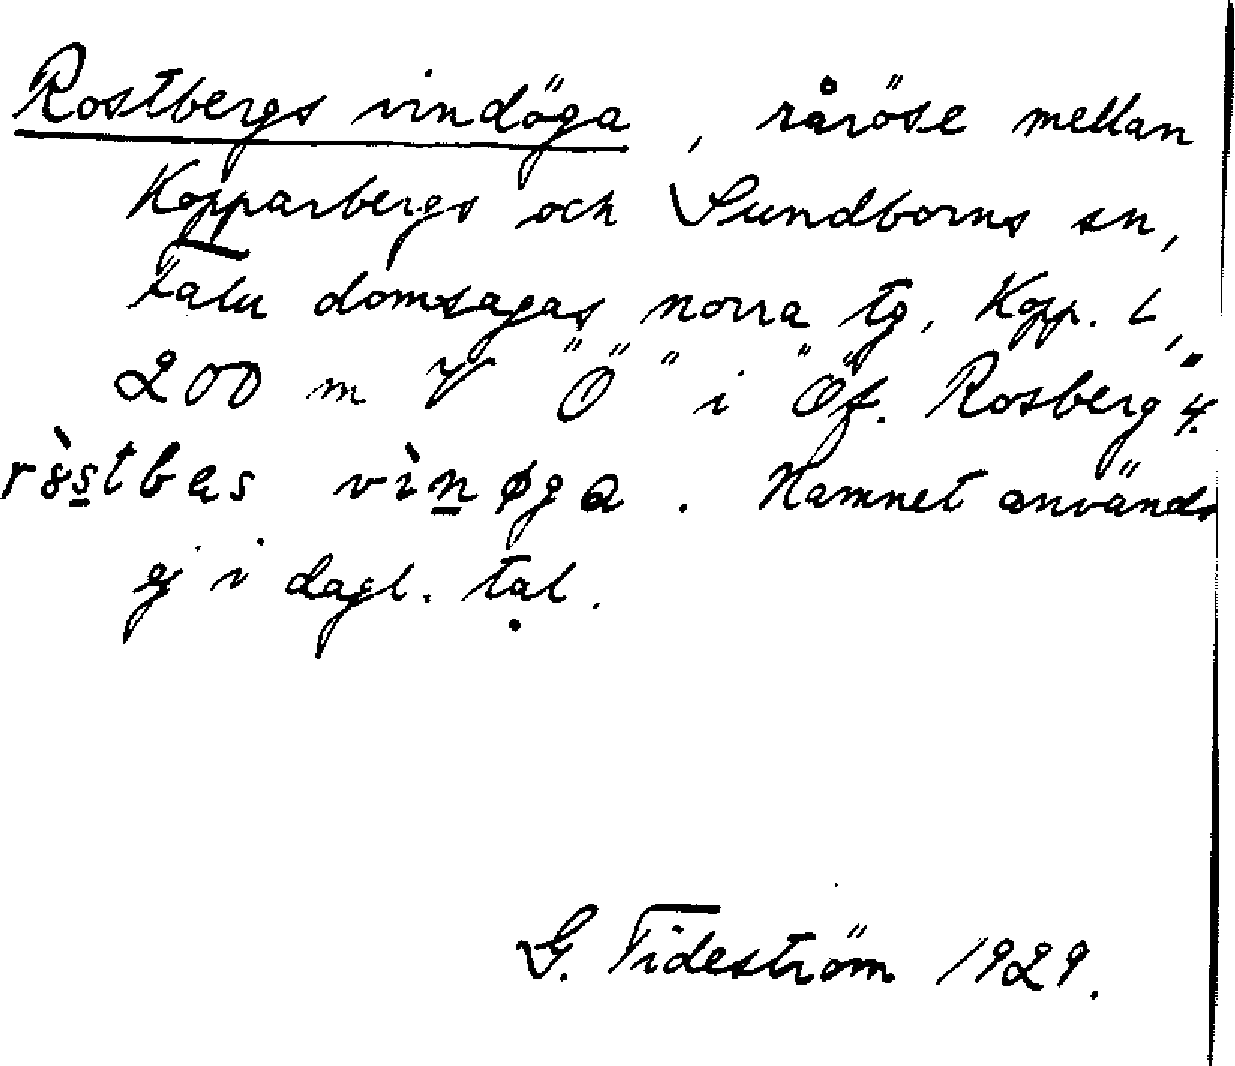 Rostbergs vindöga, råröse mellan
Kopparbergs och Sundborns sn,
Falu domsagas norra tg, Kopp. L,
200 m V "Ö" i "Öf. Rosberg" 4.
vìnøga. Namnet används
ej i dagl. tal.
G. Tideström 1929.